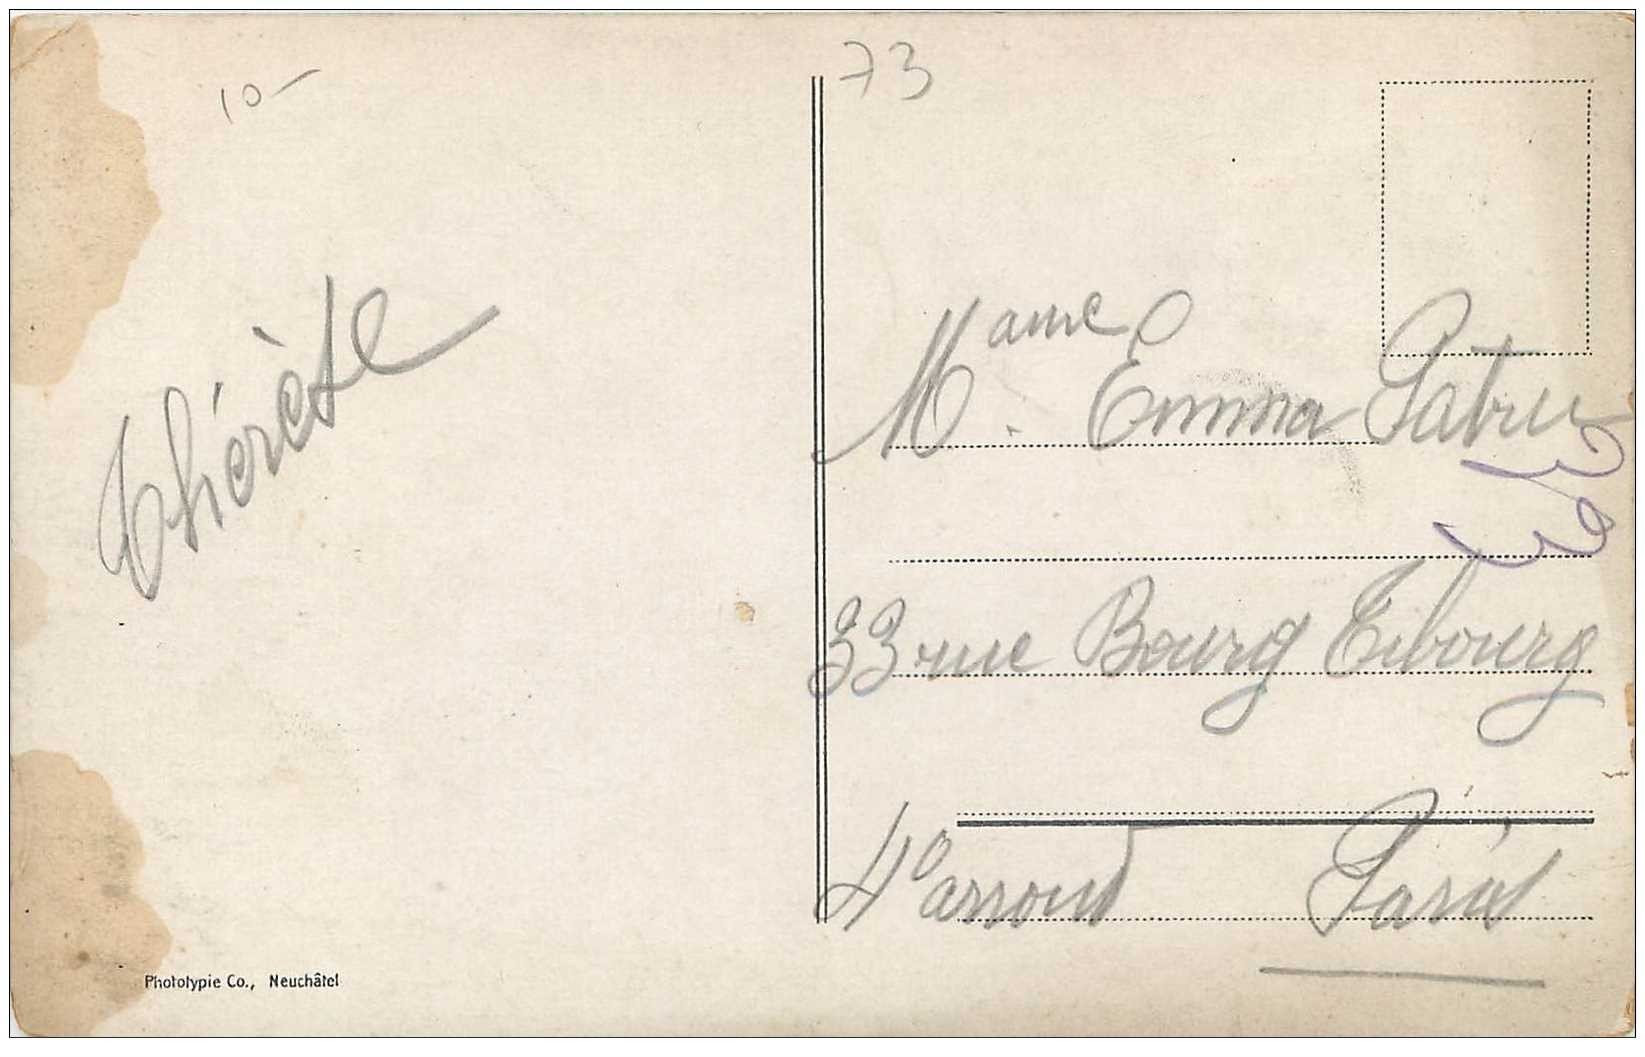 10-
73
Thérèse
Mame. Emma Patru
33 rue Bourg Tibourg
4e arrond Paris
Phototypie Co., Neuchâtel